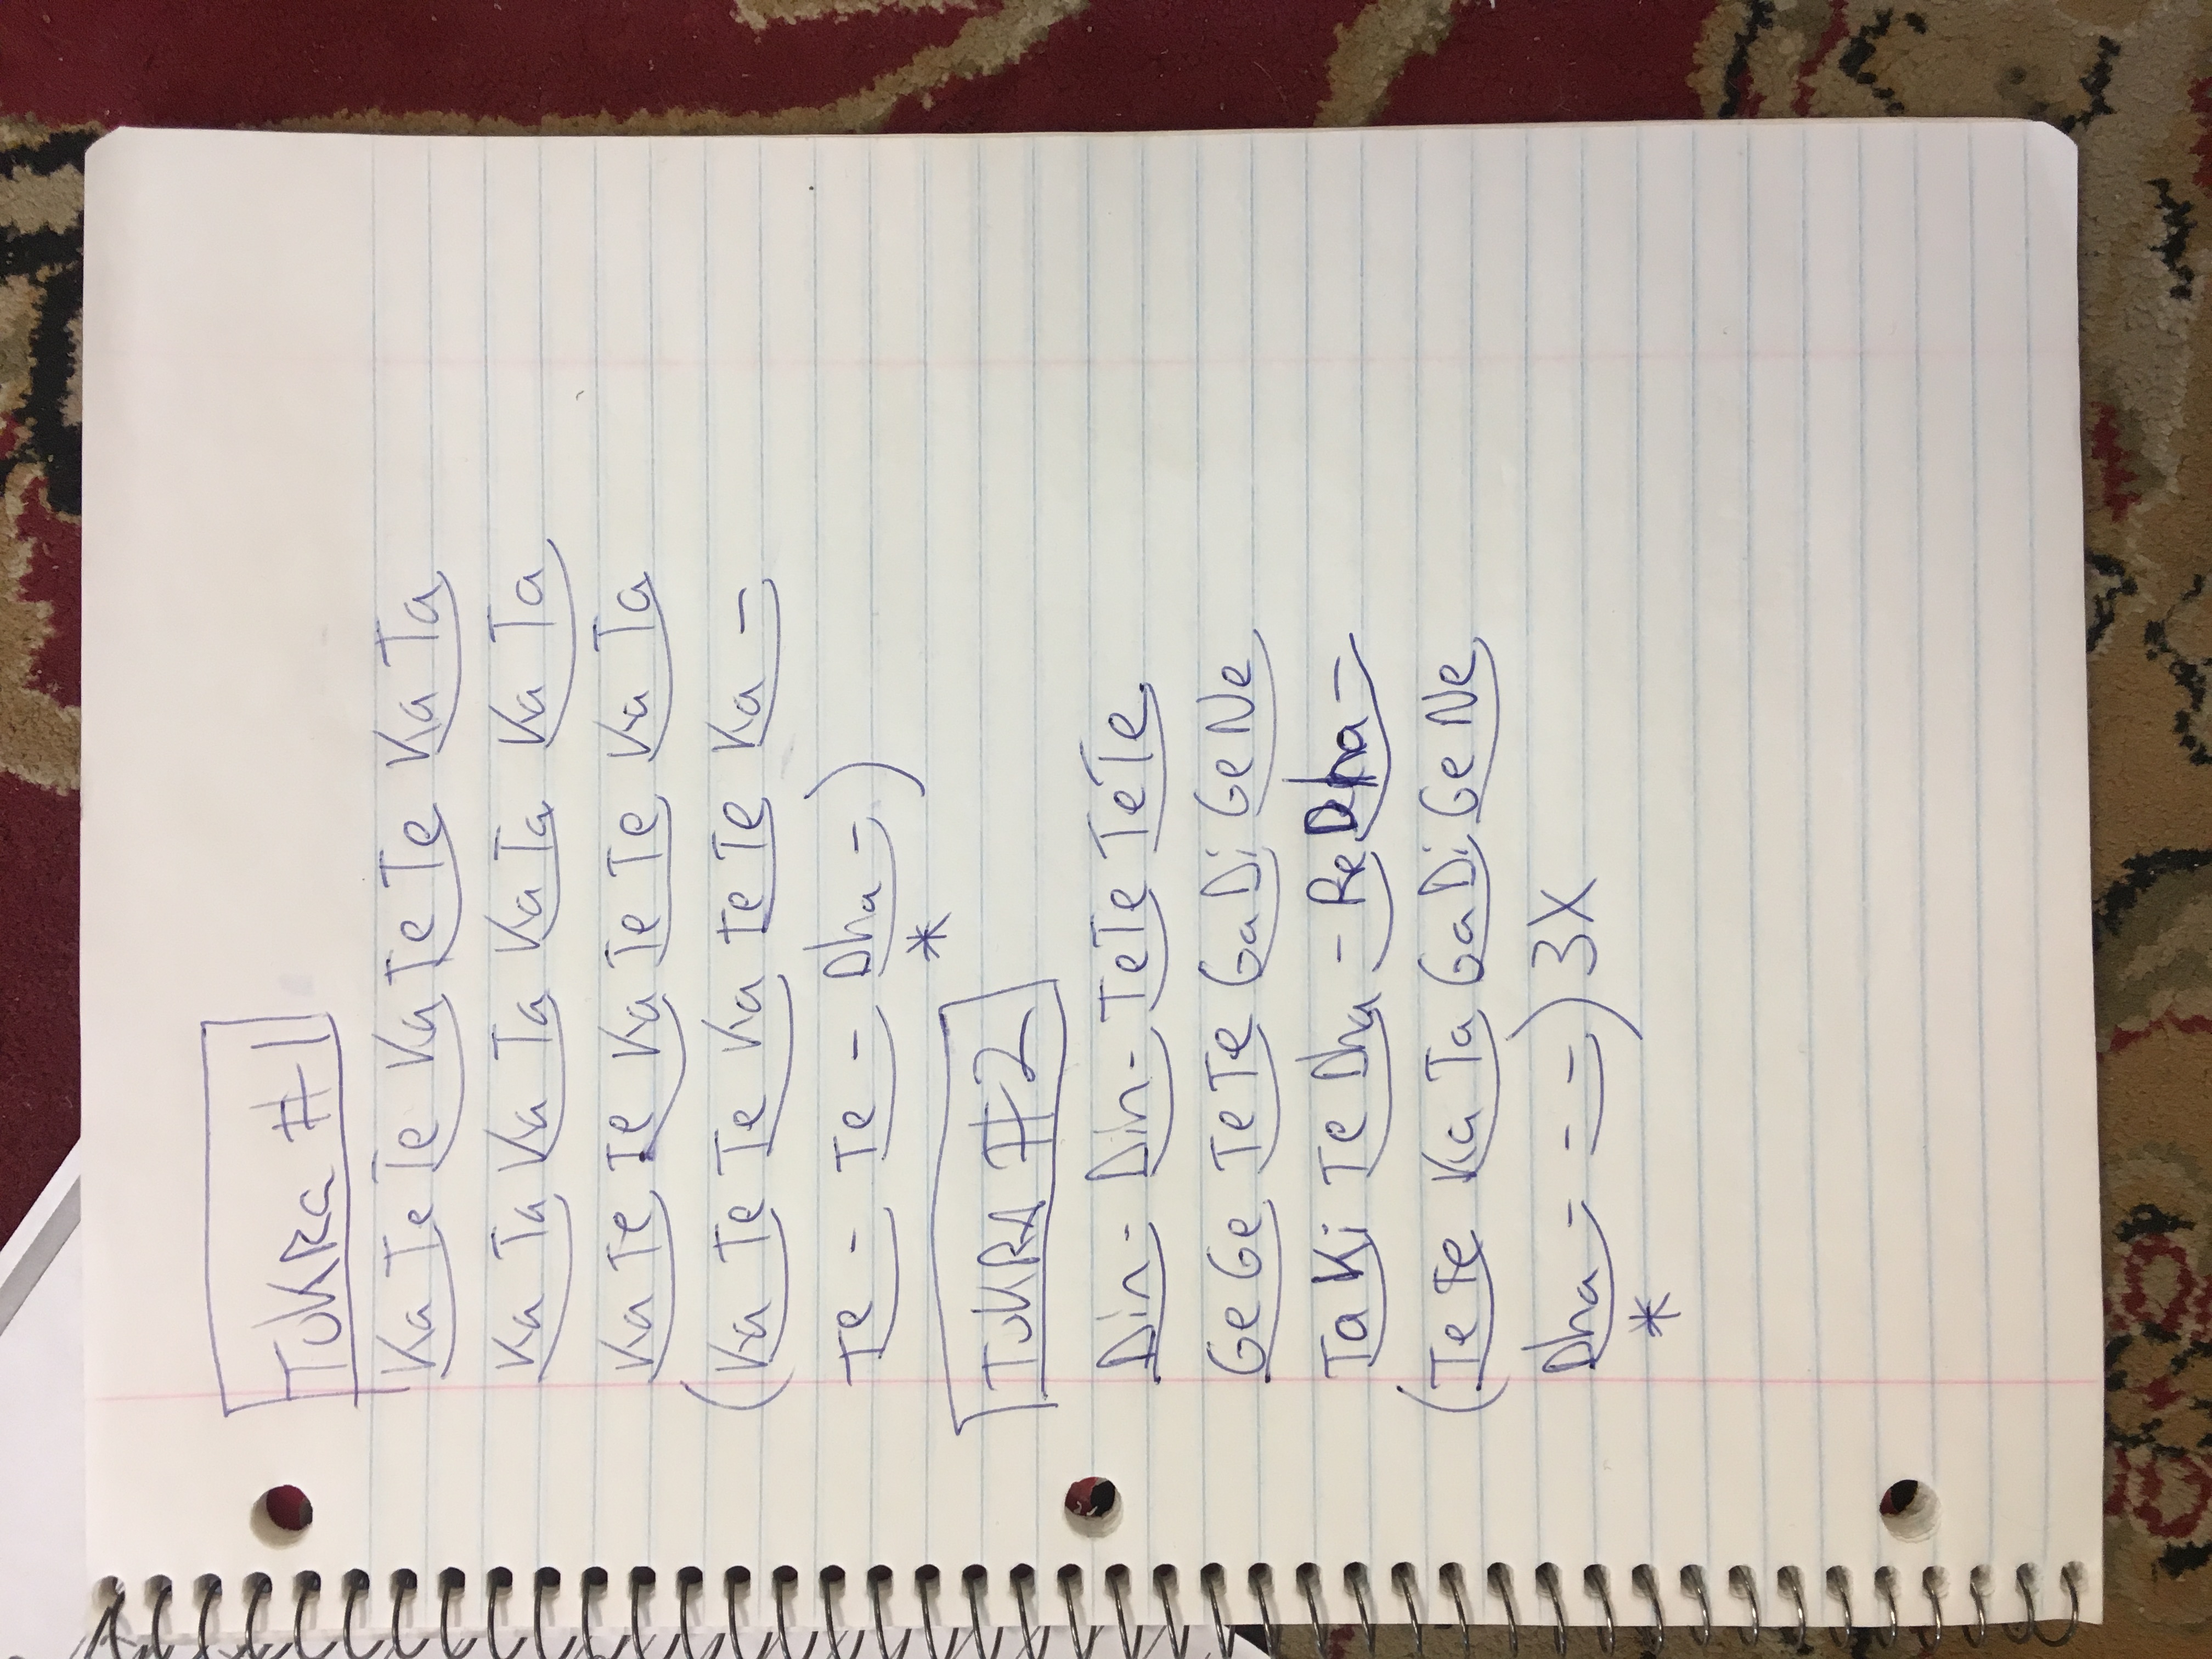 TUKRa #1
Ka Te Te Ka Te Te Ka Ta
Ka Ta Ka Ta Ka Ta Ka Ta
Ka Te Te Ka Te Te Ka Ta
(Ka Te Te Ka Te Te Ka -
Te - Te - Dha -)
*
TUKRA #2
Din- Din- TeTe TeTe
GeGe TeTe GaDi GeNe
TaKi TeDha -Re Dha-
(TeTe KaTa GaDi GeNe
Dha - - -) 3X
*